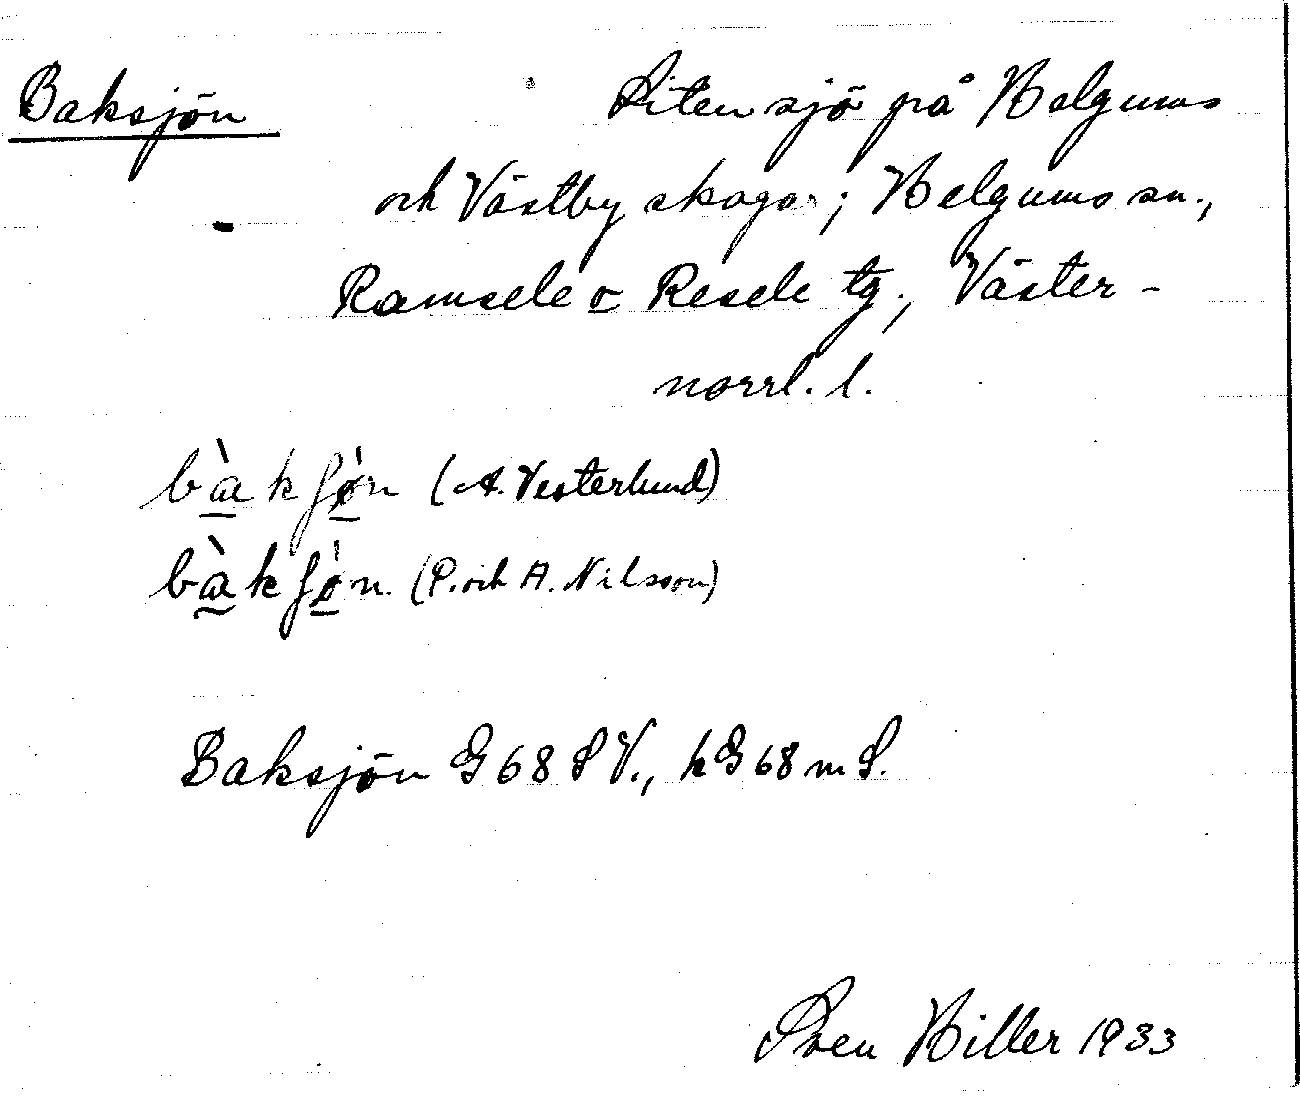 Baksjön Liten sjö på Helgums
och Västby skogar; Helgums sn.,
Ramsele o Resele tg., Väster-
norrl. l.
bàkʃø̀n (A. Vesterlund)
bàkʃø̀n. (P. och A. Nilsson)
Baksjön G 68 SV., kG 68 m S.
Sven Hiller 1933